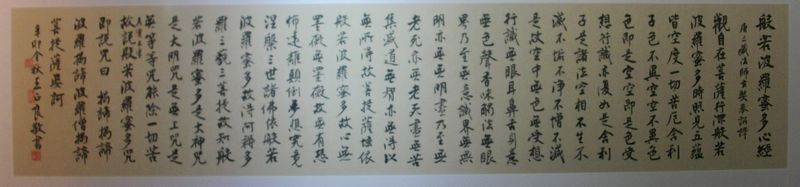 般若波羅蜜多心經
唐三藏法師玄奘奉詔譯
觀自在菩薩行深般若
波羅蜜多時照見五蘊
皆空度一切苦厄舍利
子色不異空空不異色
色即是空空即是色受
想行識亦復如是舍利
子是諸法空相不生不
滅不垢不淨不增不減
是故空中無色無受想
行識無眼耳鼻舌身意
無色聲香味觸法無眼
界乃至無意識界無無
明亦無無明盡乃至無
老死亦無老死盡無苦
集滅道無智亦無得以
無所得故菩提薩埵依
般若波羅蜜多故心無
罣礙無罣礙故無有恐
怖遠離顛倒夢想究竟
涅槃三世諸佛依般若
波羅蜜多故得阿耨多
羅三藐三菩提故知般
若波羅蜜多是大神咒
是大明咒是無上咒是
無等等咒能除一切苦
故說般若波羅蜜多咒
即說咒曰 揭諦揭諦
波羅揭諦波羅僧揭諦
菩提薩婆訶
辛卯 秋 良敬書